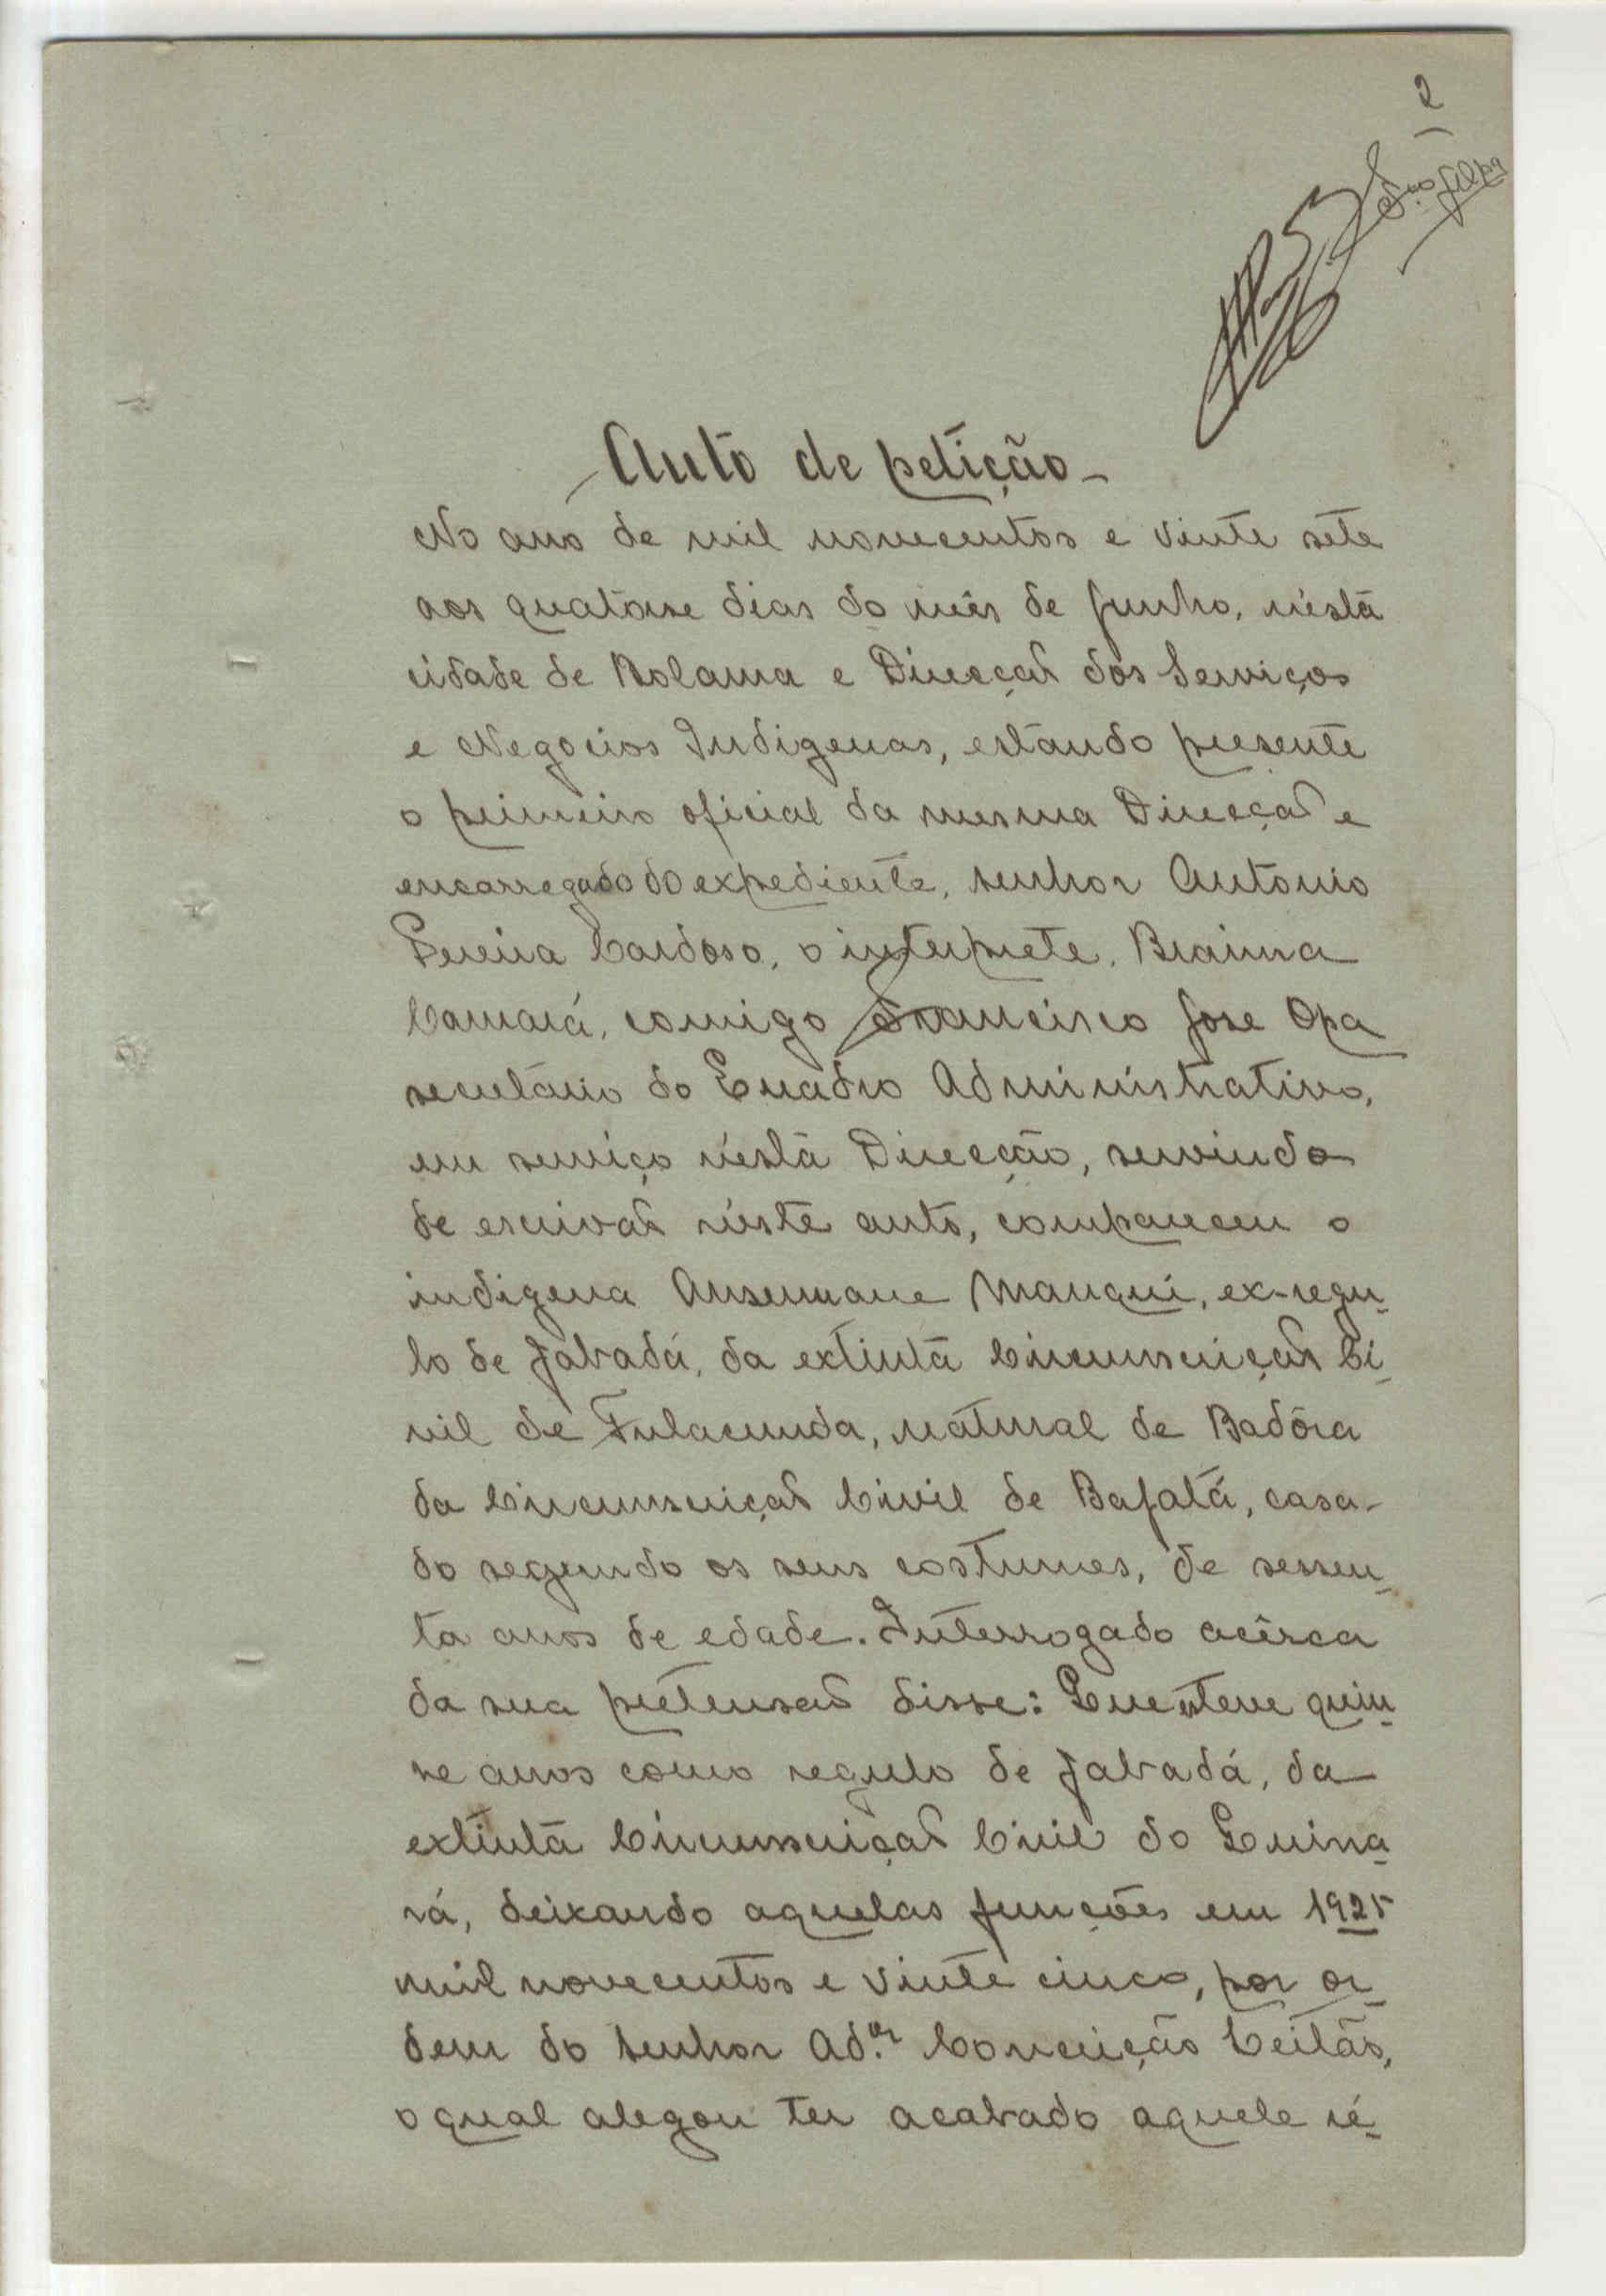 2
Auto de petição
No ano de mil novecentos e vinte sete
aos quatorse dias do mês de Junho, nésta
cidade de Bolama e Direcção dos Serviços
e Negocios Indigenas, estando presente
o primeiro oficial da mesma Direcção e
encarregado do expediente, senhor Antonio
Pereira Cardoso, o interprete, Braima
Camará, comigo Francisco Jose Opa
secretário do Quadro Administrativo,
em serviço nésta Direcção, servindo
de escrivão néste auto, compareceu o
indigena Ansumane Manqui, ex-regu-
lo de Jabadá, da extinta Circunscrição Ci-
vil de Fulacunda, natural de Badóra
da Circunscrição Civil de Bafatá, casa-
do segundo os seus costumes, de sessen-
ta anos de edade. Interrogado acêrca
da sua pretensão disse: Que esteve quin-
se anos como regulo de Jabadá, da
extinta Circunscrição Civil do Quina-
rá, deixando aquelas funções em 1925
mil novecentos e vinte cinco, por or-
dem do senhor Ad.or Conceição Leitão,
o qual alegou ter acabado aquele ré-